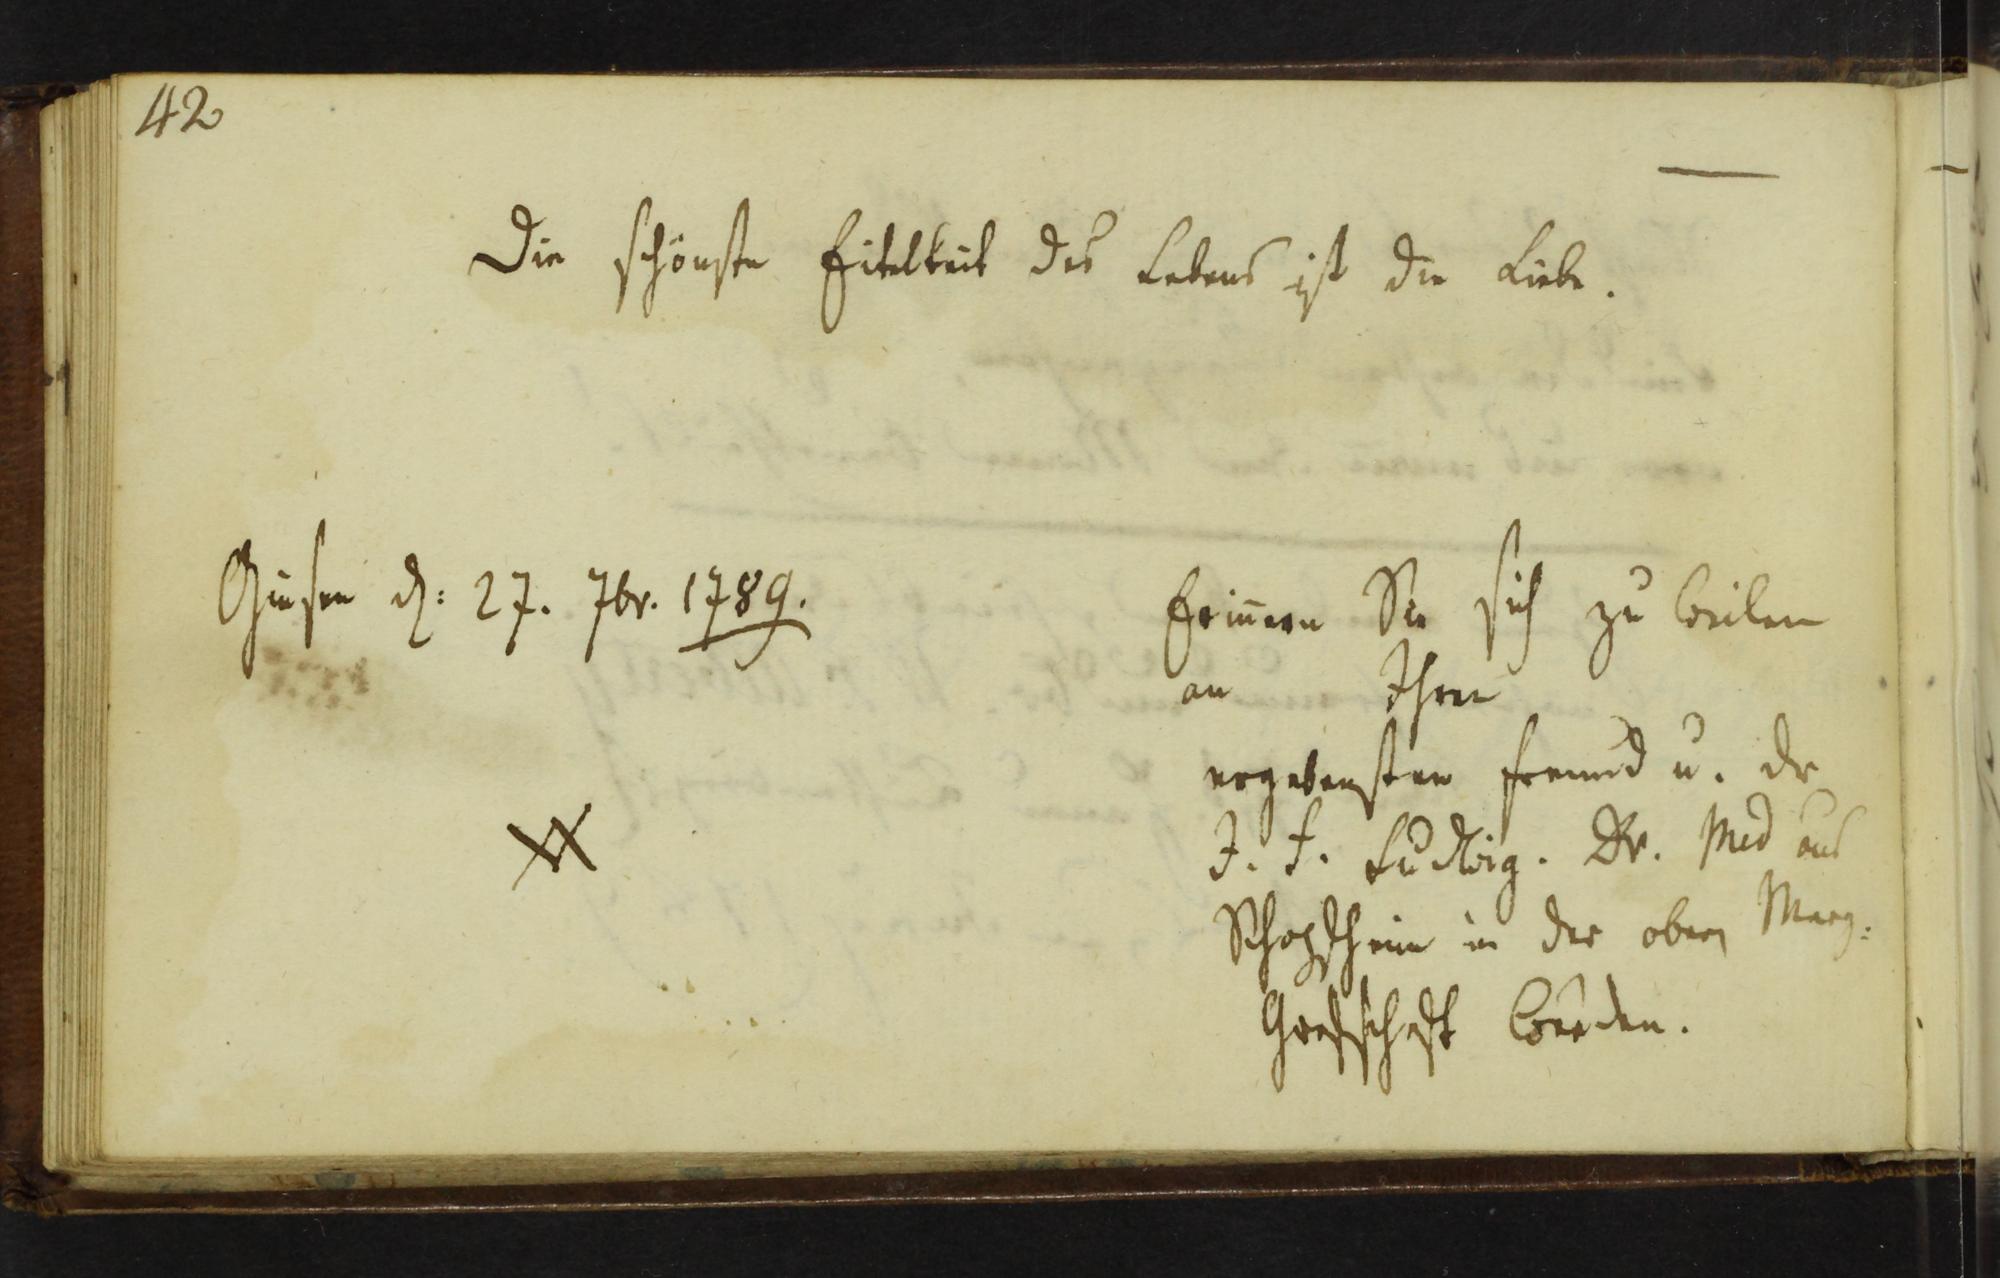 42
Die schönste Eitelkeit des Lebens ist die Liebe.
Giesen d: 27. 7br. 1789.
Erin̄ern Sie sich zu weilen
an Ihren
ergebensten Freund u. Dr
J. F. Ludwig. Dr. Med aus
Schopfheim in der obern Marg:
Grafschaft Baaden.